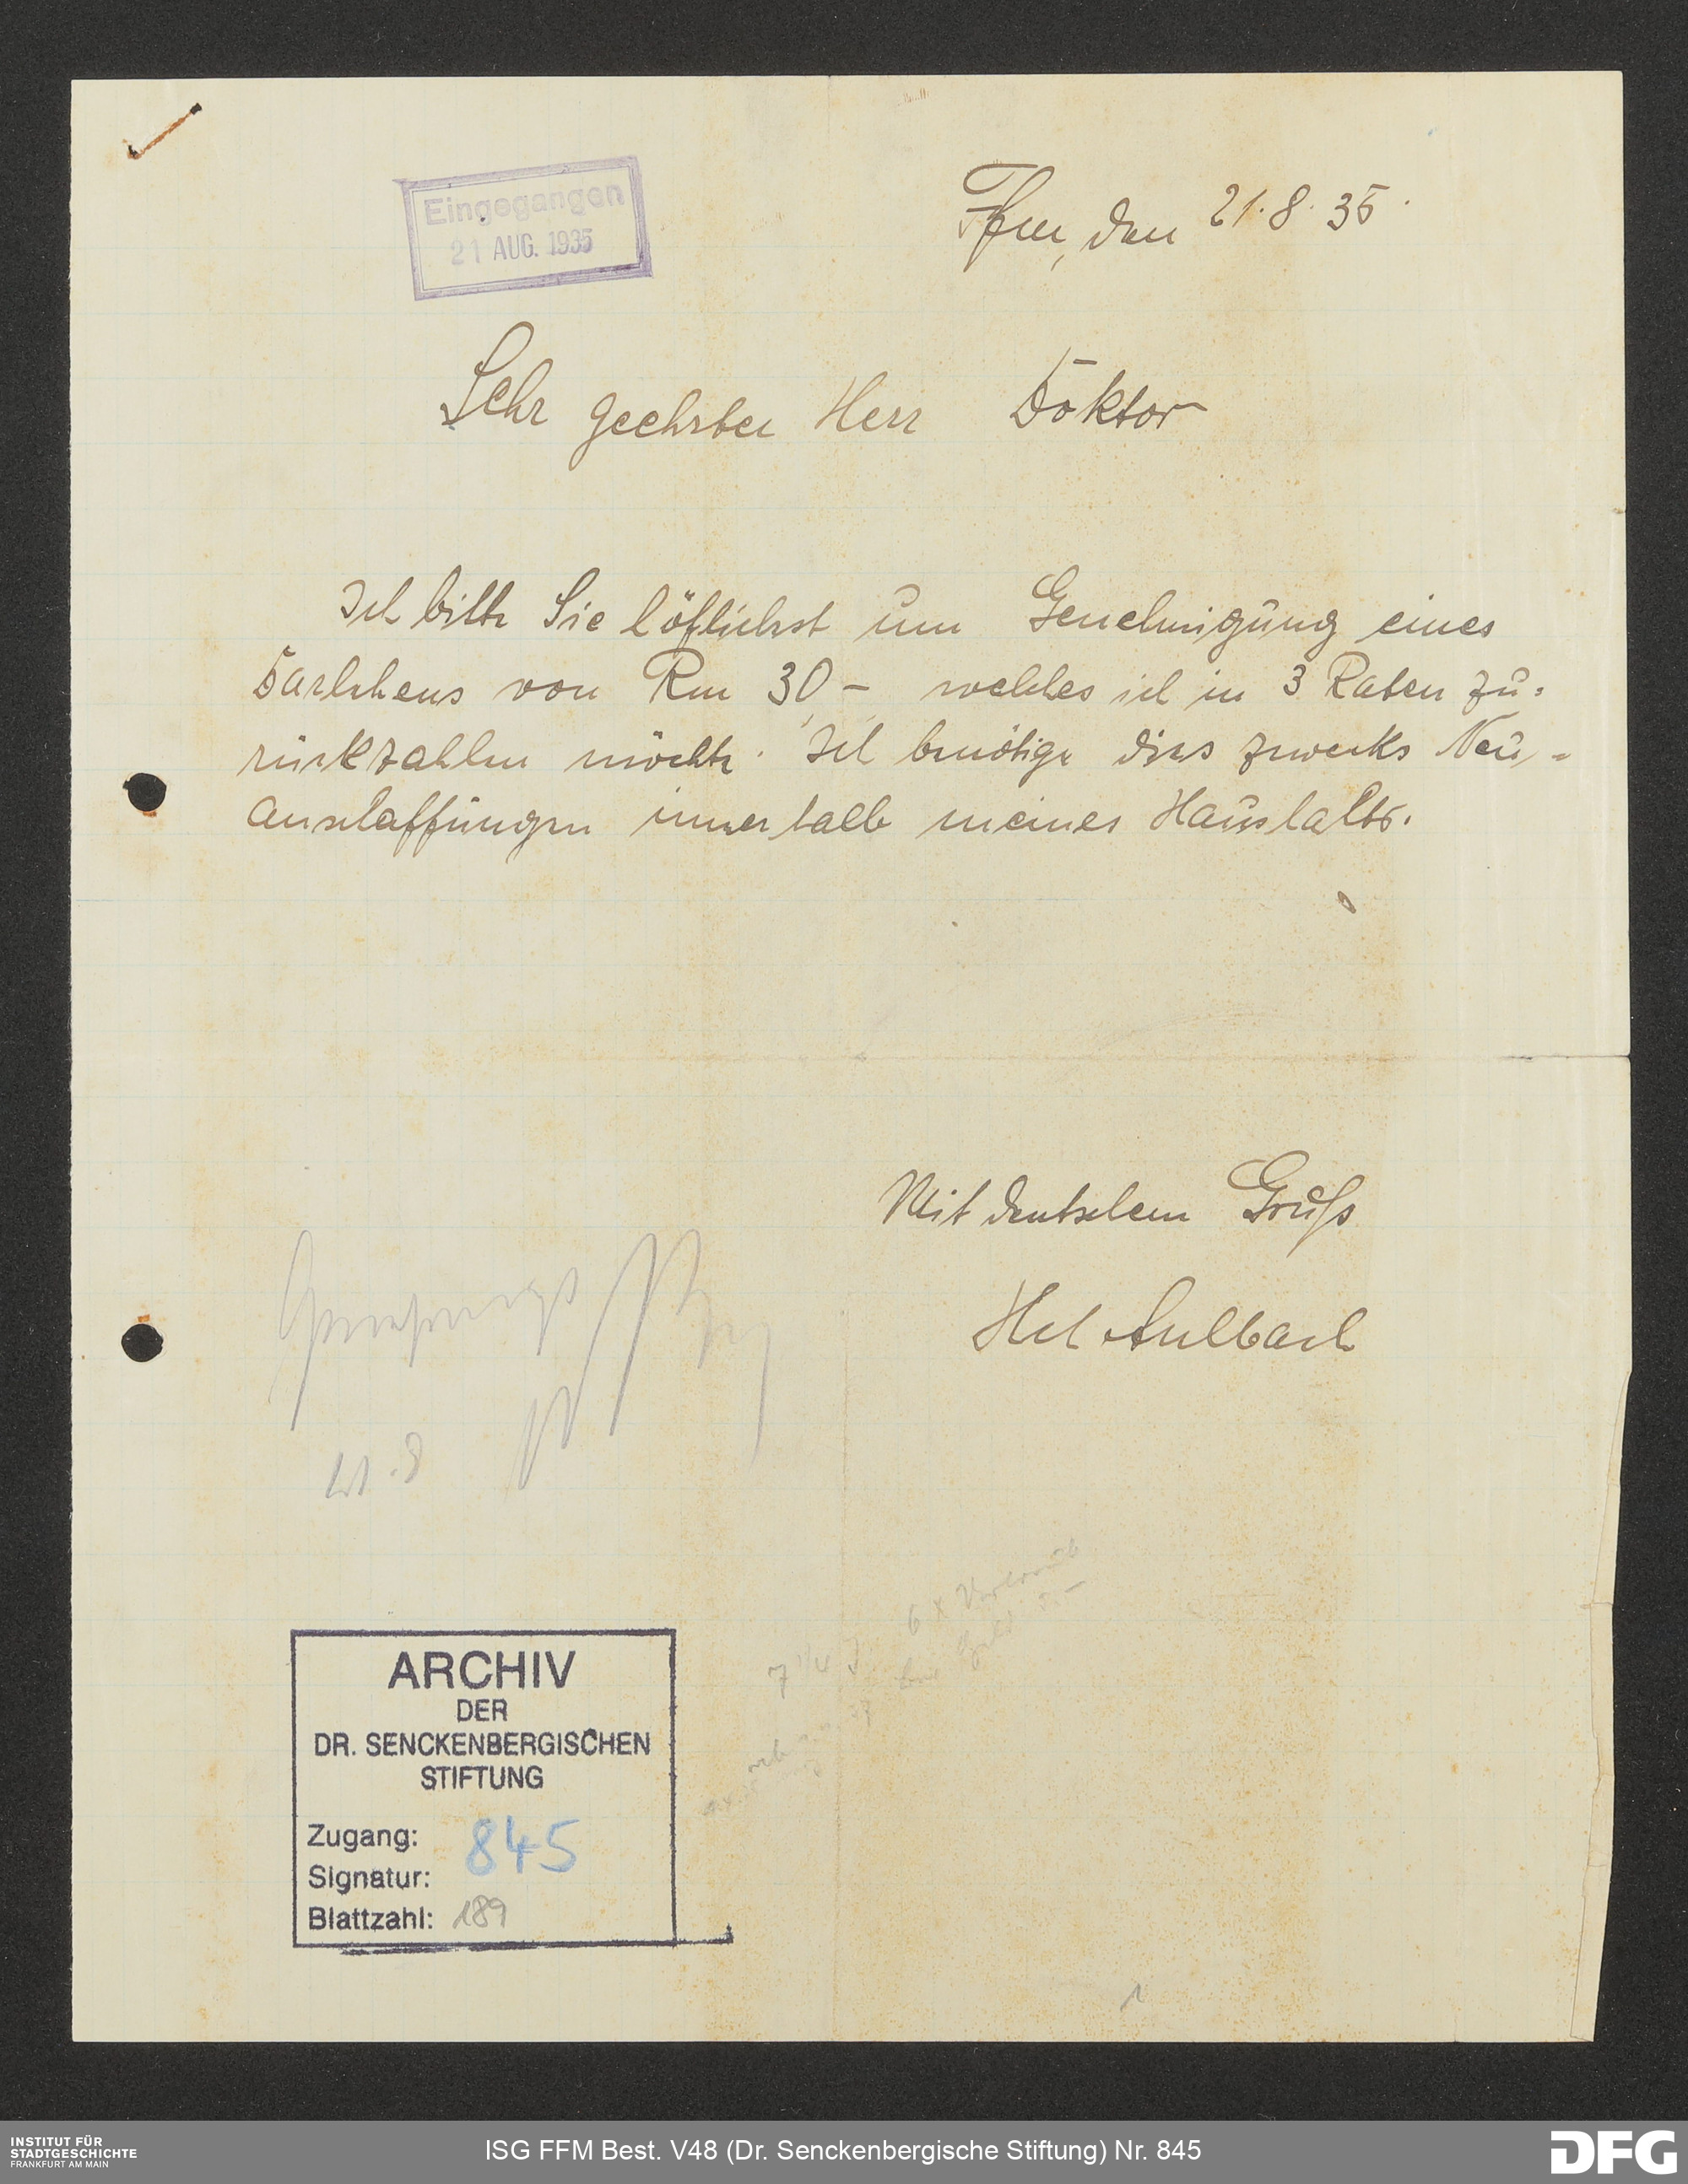 Eingegangen
21 AUG. 1935
Ffm, den 21.8.35.
Sehr geehrter Herr Doktor
Ich bitte Sie höflichst um Genehmigung eines
Darlehens von Rm 30,- welches ich in 3 Raten zu=
rückzahlen möchte. Ich benötige dies zwecks Neu=
anschaffungen innerhalb meines Haushalts.
Mit deutschem Gruß
Hch Aulbach
21.8
ARCHIV
DER
DR. SENCKENBERGISCHEN
STIFTUNG
Zugang: 845
Signatur:
Blattzahl: 189
1
INSTITUT FÜR
STADTGESCHICHTE
FRANKFURT AM MAIN
ISG FFM Best. V48 (Dr. Senckenbergische Stiftung) Nr. 845
DFG